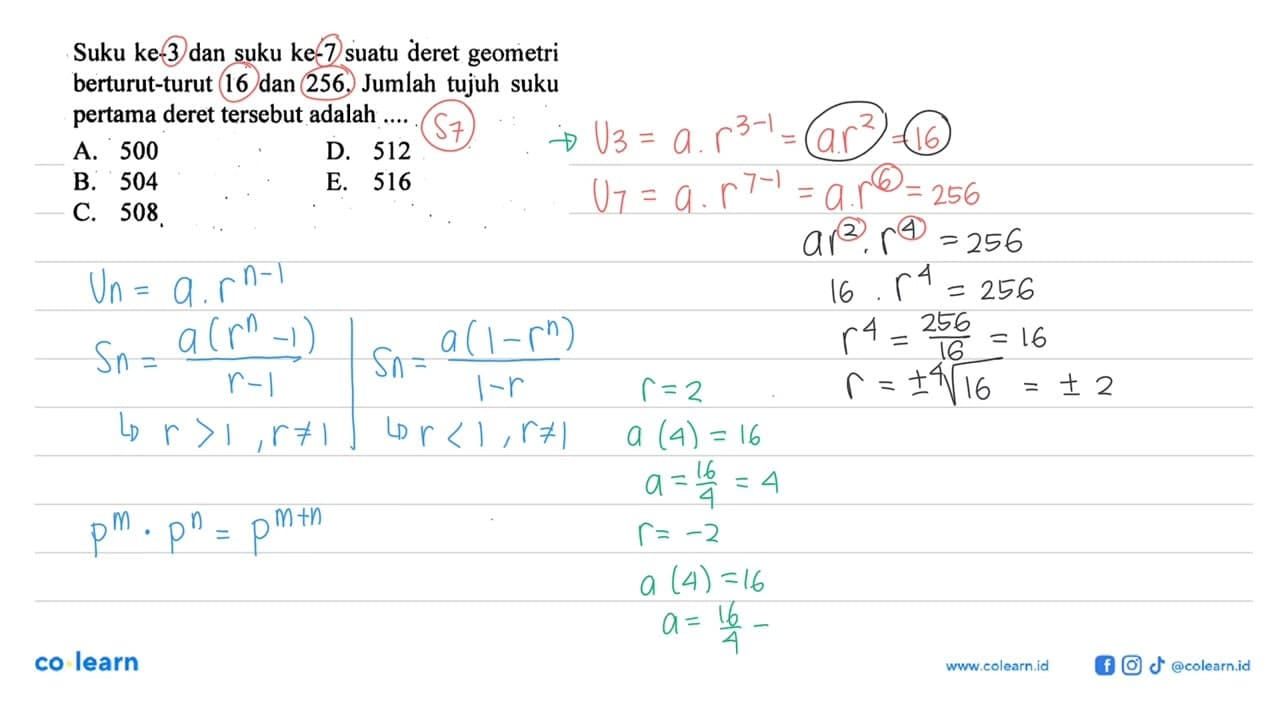 Suku ke-3 dan suku ke-7 suatu deret geometri
berturut-turut 16 dan 256. Jumlah tujuh suku
pertama deret tersebut adalah .... S7
A. 500 D. 512
B. 504 E. 516
C. 508
→ U3 = a . r^3-1 = ar^2 = 16
U7 = a . r^7-1 = a.r^6 = 256
ar^2 . r^4 = 256
16 . r^4 = 256
r^4 = 256/16 = 16
r = ±⁴√16 = ± 2
Un = a . r^n-1
Sn = a(r^n - 1)/r-1
↳ r > 1 , r ≠ 1
Sn = a(1-r^n)/1-r
↳ r < 1 , r ≠ 1
p^m . p^n = p^m+n
r = 2
a (4) = 16
a = 16/4 = 4
r = -2
a (4) = 16
a = 16/4 -
co learn
www.colearn.id
@colearn.id